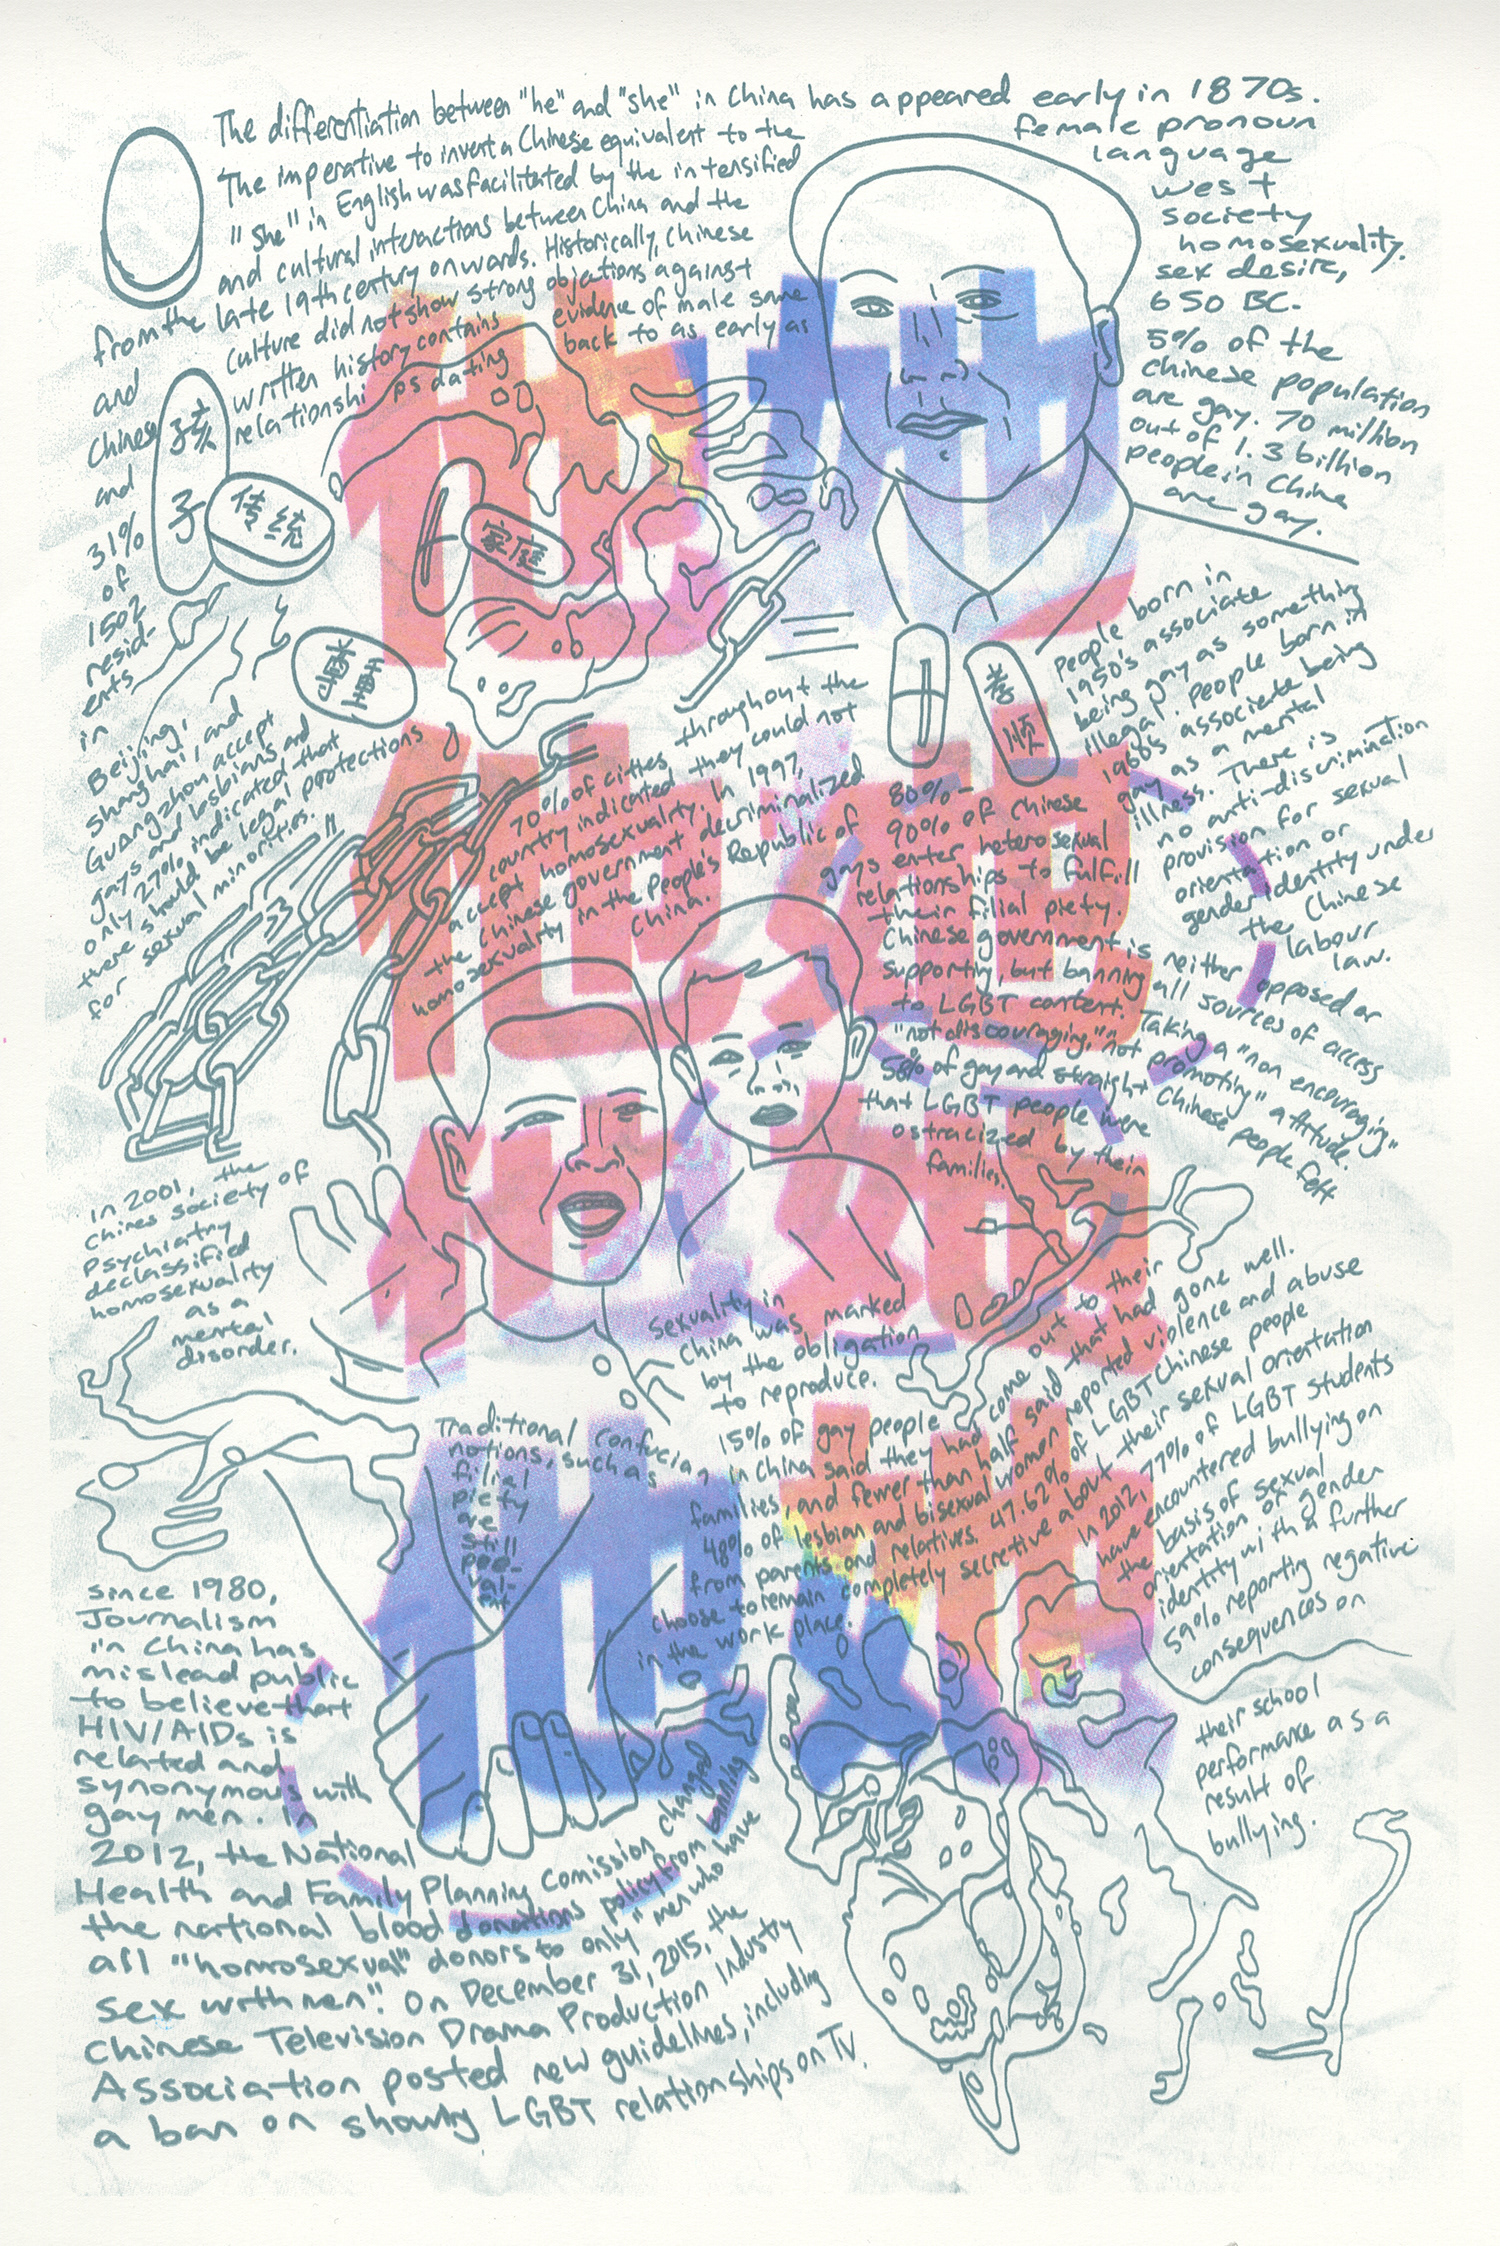 The differentiation between "he" and "she" in China has appeared early in 1870s.
The imperative to invent a Chinese equivalent to the female pronoun
"she" in English was facilitated by the intensified language
and cultural interactions between China and the west
from the late 19th century onwards. Historically, Chinese society
and culture did not show strong objections against homosexuality.
Chinese written history contains evidence of male same sex desire,
and relationships dating back to as early as 650 BC.
5% of the
Chinese population
are gay. 70 million
out of 1.3 billion
people in China
are gay.
孩子
传统
家庭
孝顺
31%
of
1502
resid-
ents
in
Beijing,
Shanghai, and
Guangzhou accept
gays and lesbians and
only 27% indicated that
there should be legal protections
for sexual minorities.
70% of cities throughout the
country indicated they could not
accept homosexuality. In 1997,
the Chinese government decriminalized
homosexuality in the People's Republic of
China.
People born in
1950's associate
being gay as something
illegal. People born in
1960's associate being
gay as a mental
illness. There is
no anti-discrimination
provision for sexual
orientation or
gender identity under
the Chinese
labour
law.
80%-
90% of Chinese
gays enter heterosexual
relationships to fulfill
their filial piety.
Chinese government is neither opposed or
supporting, but banning all sources of access
to LGBT content. Taking a "non encouraging,"
"not discouraging," "not promoting" attitude.
58% of gay and straight Chinese people felt
that LGBT people were
ostracized by their
families.
他 她
他 她
他 她
他 她
In 2001, the
Chines Society of
Psychiatry
declassified
homosexuality
as a
mental
disorder.
Sexuality in
China was marked
by the obligation
to reproduce.
Traditional Confucian
notions, such as
filial
piety
are
still
pre-
val-
ent
15% of gay people
in China said they had come out to their
families, and fewer than half said that had gone well.
48% of lesbian and bisexual women reported violence and abuse
from parents and relatives. 47.62% of LGBT Chinese people
choose to remain completely secretive about their sexual orientation
in the work place.
In 2012, 77% of LGBT students
have encountered bullying on
the basis of sexual
orientation or gender
identity with a further
59% reporting negative
consequences on
their school
performance as a
result of
bullying.
since 1980,
Journalism
in China has
mislead public
to believe that
HIV/AIDs is
related and
synonymous with
gay men. In
2012, the National
Health and Family Planning Comission changed
the national blood donations policy from banning
all "homosexual" donors to only "men who have
sex with men". On December 31, 2015, the
Chinese Television Drama Production Industry
Association posted new guidelines, including
a ban on showing LGBT relationships on TV.